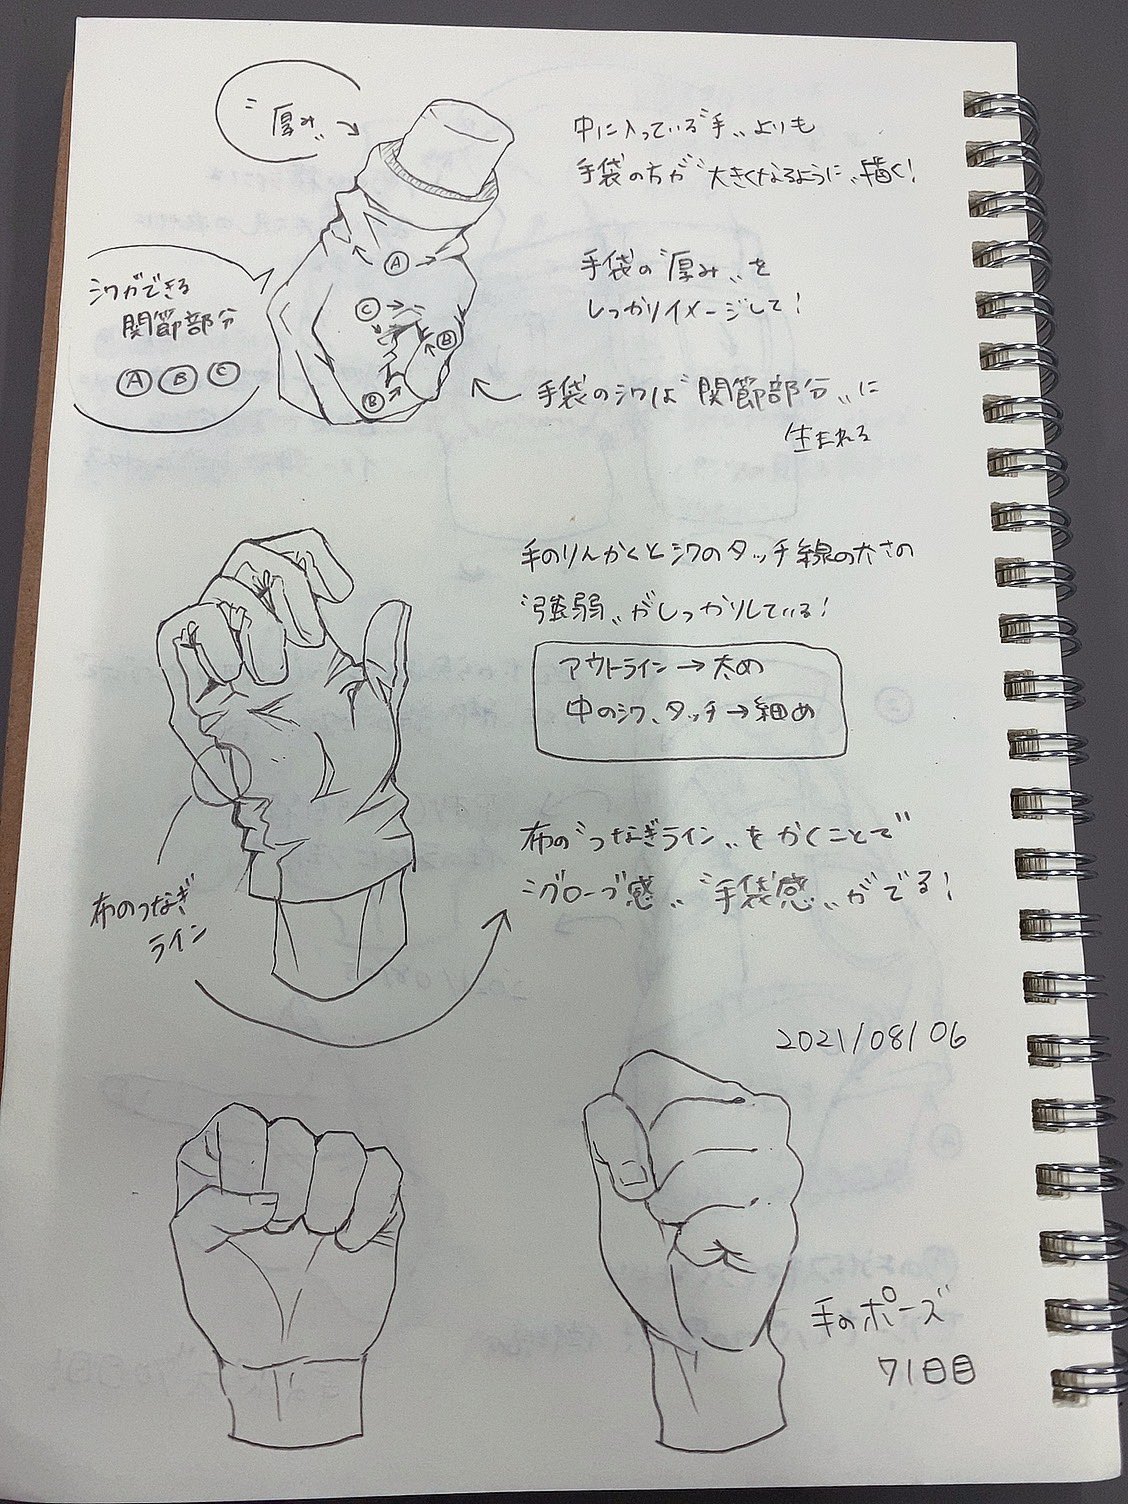 〝厚み〟
中に入っている〝手〟よりも
手袋の方が〝大きくなるように〟描く！
手袋の〝厚み〟を
しっかりイメージして！
シワができる
関節部分
Ⓐ Ⓑ Ⓒ
Ⓐ
Ⓒ
Ⓑ
Ⓑ
手袋のシワは〝関節部分〟に
生まれる
手のりんかくとシワのタッチ線の太さの
〝強弱〟がしっかりしている！
アウトライン→太め
中のシワ、タッチ→細め
布の〝つなぎライン〟をかくことで
〝グローブ感〟〝手袋感〟がでる！
布のつなぎ
ライン
2021/08/06
手のポーズ
71日目